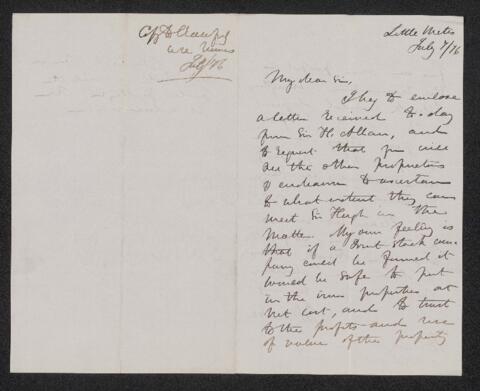 Little Metis
July 7/76
My dear Sir,
I beg to enclose
a letter received to-day
from Sir H. Allan, and
to request that you will
see the other proprietors
& endeavour to ascertain
to what extent they can
meet Sir Hugh in the
matter. My own feeling is
that if a Joint Stock com-
pany could be formed it
would be safe to put
in the iron properties at
net cost, and to trust
to the profits and rise
of value of the property
Copy
re
July/76